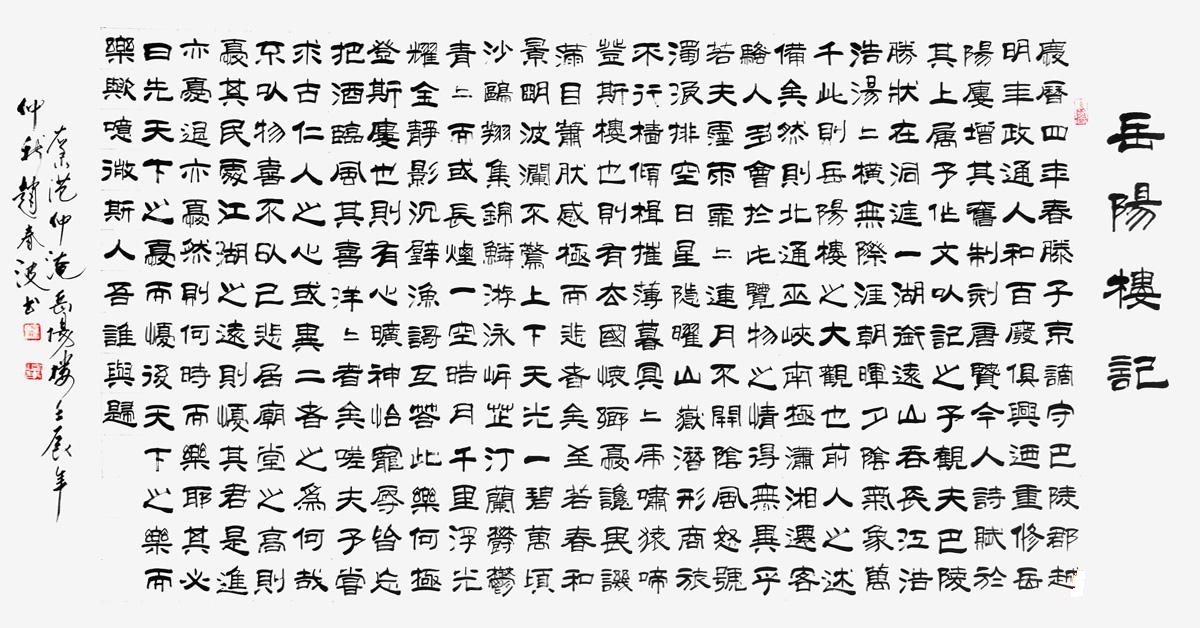 岳陽樓記
慶曆四年春滕子京謫守巴陵郡越
明年政通人和百廢俱興迺重修岳
陽樓增其舊制刻唐賢今人詩賦於
其上屬予作文以記之予觀夫巴陵
勝狀在洞庭一湖銜遠山吞長江浩
浩湯〻橫無際涯朝暉夕陰氣象萬
千此則岳陽樓之大觀也前人之述
備矣然則北通巫峽南極瀟湘遷客
騷人多會於此覽物之情得無異乎
若夫霪雨霏〻連月不開陰風怒號
濁浪排空日星隱曜山嶽潛形商旅
不行檣傾楫摧薄暮冥〻虎嘯猿啼
登斯樓也則有去國懷鄉憂讒畏譏
滿目蕭然感極而悲者矣至若春和
景明波瀾不驚上下天光一碧萬頃
沙鷗翔集錦鱗游泳岸芷汀蘭鬱鬱
青〻而或長煙一空皓月千里浮光
耀金靜影沉璧漁謌互答此樂何極
登斯樓也則有心曠神怡寵辱皆忘
把酒臨風其喜洋〻者矣嗟夫予嘗
求古仁人之心或異二者之為何哉
不以物喜不以己悲居廟堂之高則
憂其民處江湖之遠則憂其君是進
亦憂退亦憂然則何時而樂耶其必
曰先天下之憂而憂後天下之樂而
樂歟噫微斯人吾誰與歸
范仲淹岳陽樓壬辰年
仲秋趙春波书